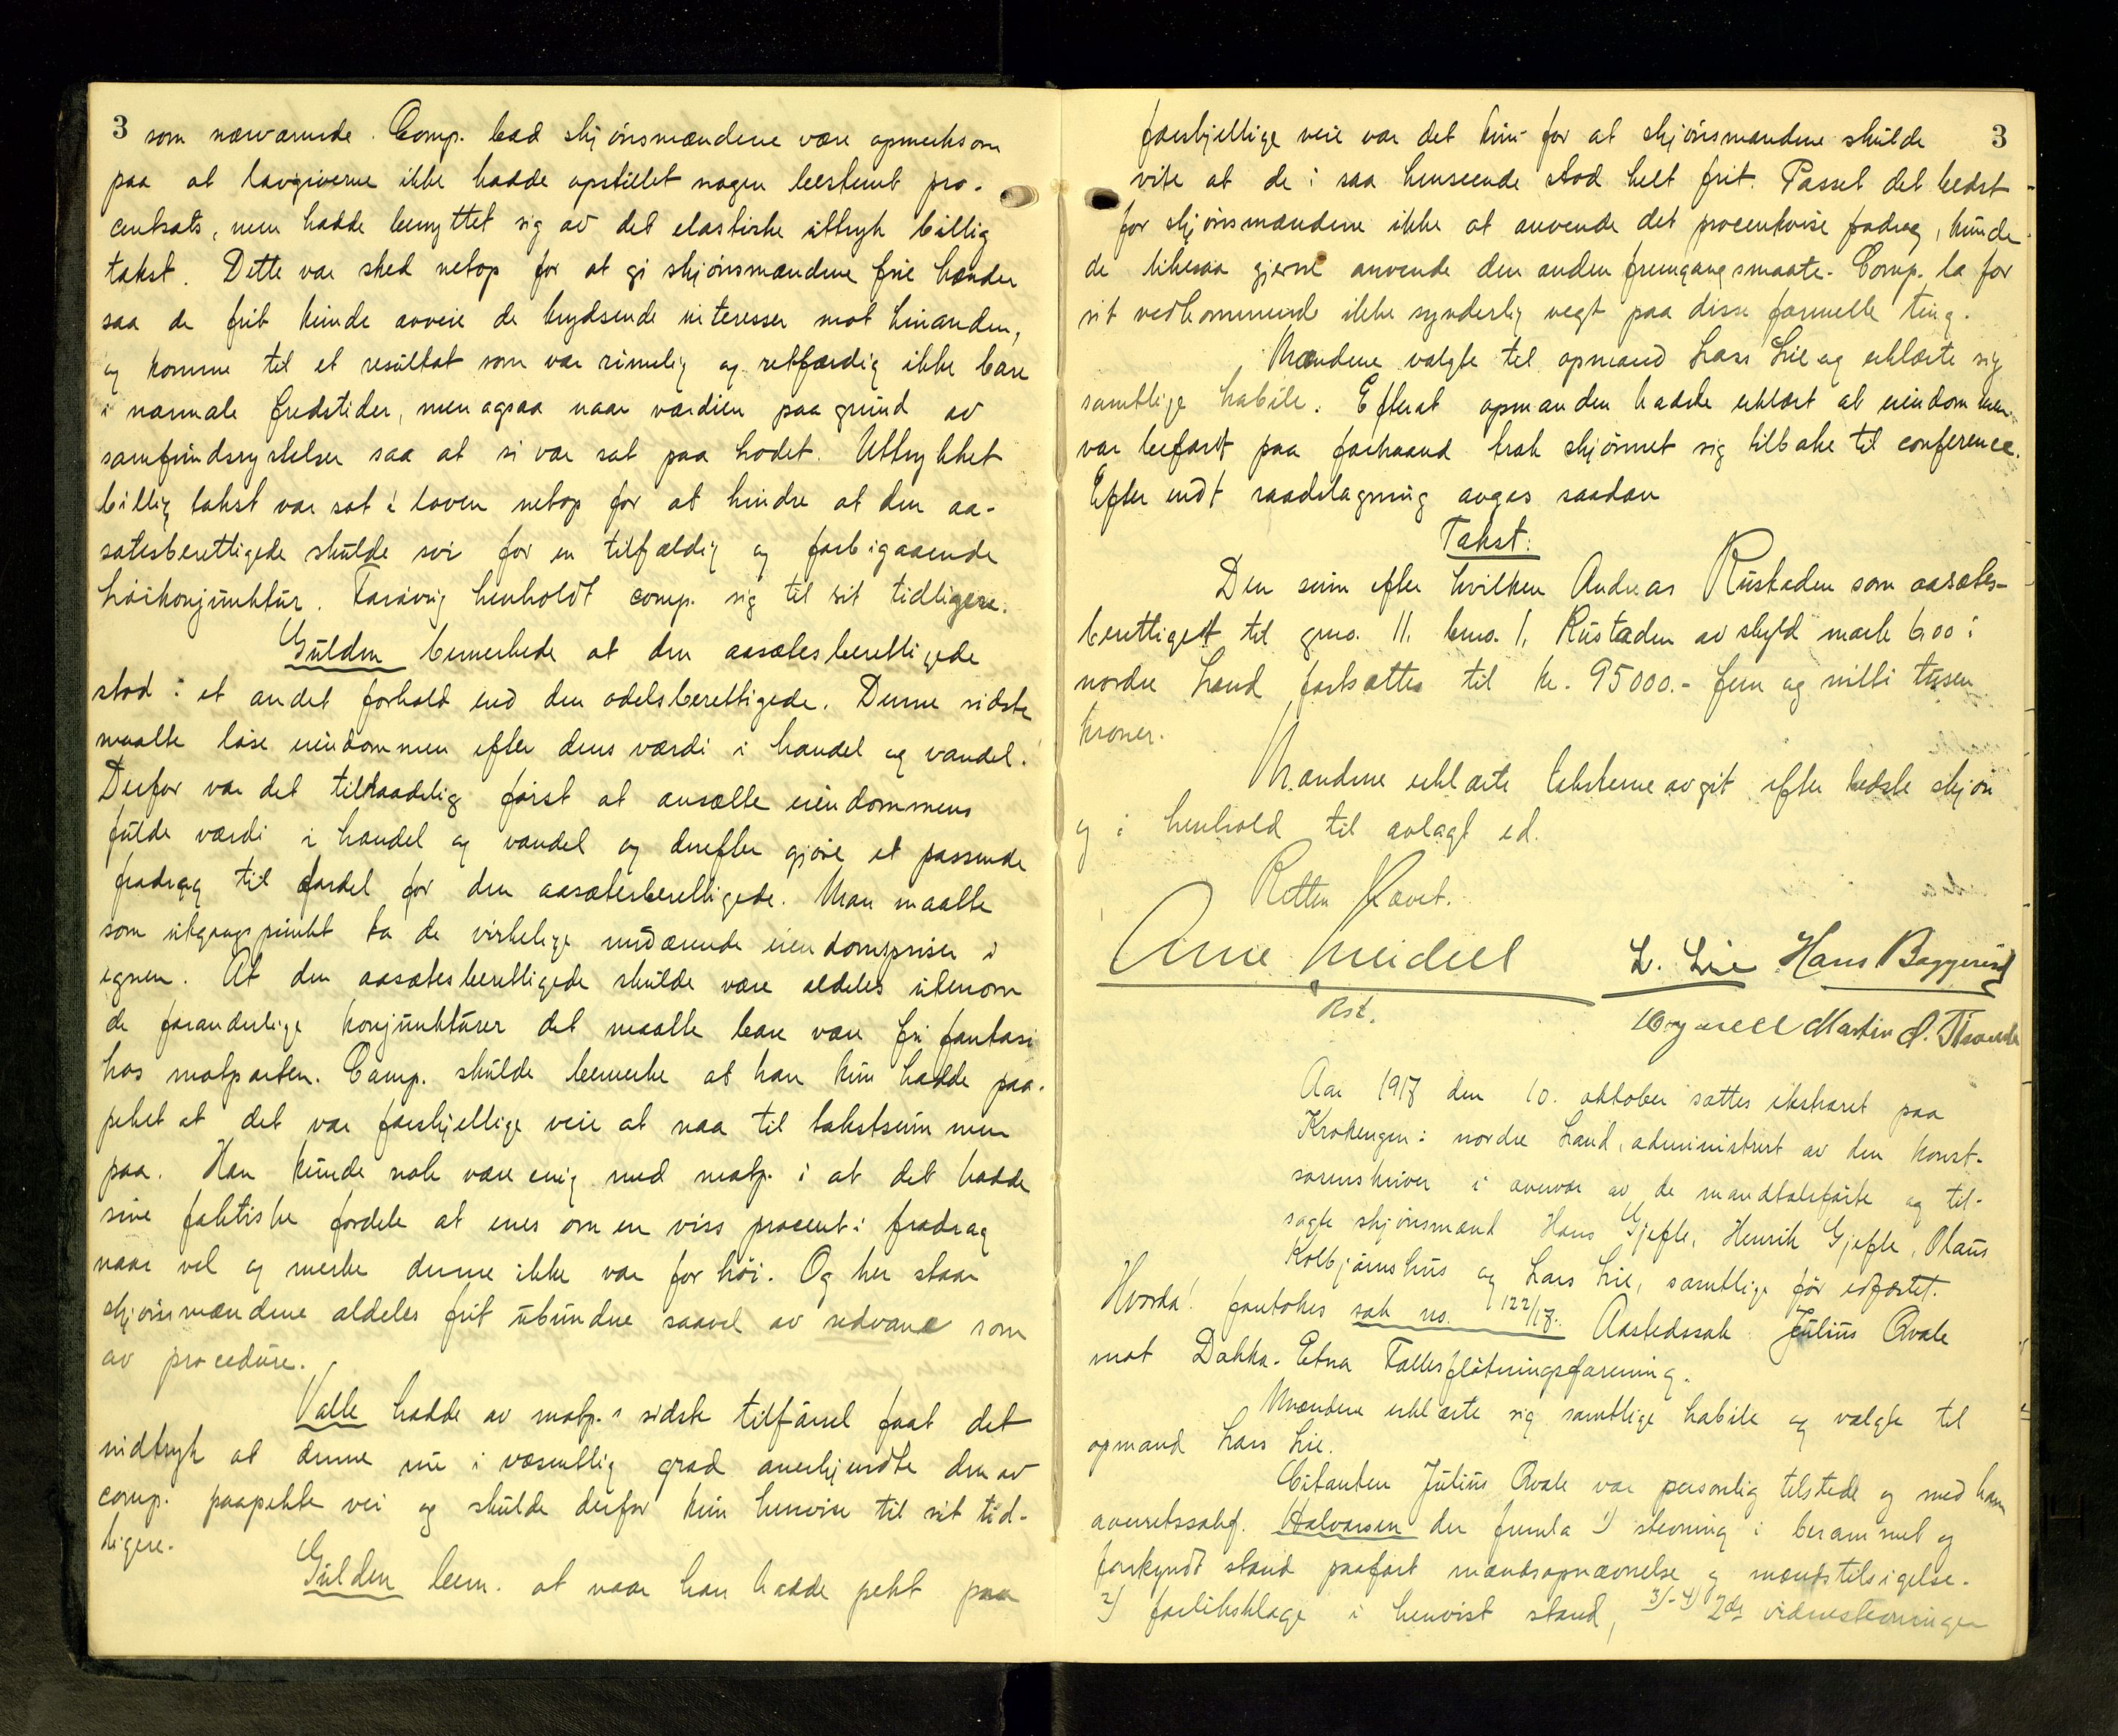 3
som nærværende. Comp. bad skjønsmændene være opmerksom
paa at lovgiverne ikke hadde opstillet nogen bestemt pro-
centsats, men hadde benyttet sig av det elastiske uttryk billig
takst. Dette var sked netop for at gi skjønsmændene frie hænder
saa de frit kunde avveie de krydsende interesser mot hinanden,
og komme til et resultat som var rimelig og retfærdig ikke bare
i normale fredstider, men ogsaa naar værdien paa grund av
samfundsrystelser saa at si var sat paa hodet. Uttrykket
billig takst var sat i loven netop for at hindre at den aa-
sætesberettigede skulde svi for en tilfældig og forbigaaende
høikonjunktur. Forøvrig henholdt comp. sig til sit tidligere.
Gulden bemerkede at den aasætesberettigede
stod i et andet forhold end den odelsberettigede. Denne sidste
maatte løse eiendommen efter dens værdi i handel og vandel.
Derfor var det tilraadelig først at ansætte eiendommens
fulde værdi i handel og vandel og derefter gjøre et passende
fradrag til fordel for den aasætesberettigede. Man maatte
som utgangspunkt ta de virkelige nuværende eiendomspriser i
egnen. At den aasætesberettigede skulde være aldeles utenom
de foranderlige konjunkturer det maatte bare være fri fantasi
hos motparten. Comp. skulde bemerke at han kun hadde paa-
peket at det var forskjellige veie at naa til takstsummen
paa. Han kunde nok være enig med motp. i at det hadde
sine faktiske fordele at enes om en viss procent i fradrag
naar vel og merke denne ikke var for høi. Og her staar
skjønsmændene aldeles frit ubundne saavel av sedvane som
av procedure.
Valle hadde av motp.s sidste tilførsel faat det
indtryk at denne nu i væsentlig grad anerkjendte den av
comp. paapekte vei og skulde derfor kun henvise til sit tid-
ligere.
Gulden bem. at naar han hadde pekt paa
3
forskjellige veie var det kun for at skjønsmændene skulde
vite at de i saa henseende stod helt frit. Passet det bedst
for skjønsmændene ikke at anvende det procentvise fradrag, kunde
de likesaa gjerne anvende den anden fremgangsmaate. Comp. la for
sit vedkommende ikke synderlig vegt paa disse formelle ting.
Mændene valgte til opmand Lars Lie og erklærte sig
samtlige habile. Efterat opmanden hadde erklært at eiendommen
var befart paa forhaand trak skjønnet sig tilbake til conference.
Efter endt raadslagning avgas saadan
Takst:
Den sum efter hvilken Andreas Rustaden som aasætes-
berettiget til gno. 11. bno. 1, Rustaden av skyld mark 6,00 i
nordre Land fastsættes til kr. 95000.- fem og nitti tusen
kroner.
Mændene erklærte taksterne avgit efter bedste skjøn
og i henhold til avlagt ed.
Retten hævet.
Arne Meidell L. Lie Hans Baggerud
kst. Martin O.
Aar 1917 den 10. oktober sattes ekstraret paa
Krokengen i nordre Land, administrert av den konst.
sorenskriver i overvær av de mandtalsførte og til-
sagte skjønsmænd Hans Gjefle, Henrik Gjefle, Olaus
Kolbjørnshus og Lars Lie, samtlige før edfæstet.
Hvorda! foretokes sak no. 122/17. Aastedssak Julius Kvale
mot Dokka-Etna Fællesfløtningsforening.
Mændene erklærte sig samtlige habile og valgte til
opmand Lars Lie.
Citanten Julius Kvale var personlig tilstede og med ham
overretssakf. Halvorsen der fremla 1) stevning i berammet og
forkyndt stand paaført mændsopnævnelse og mændstilsigelse.
2) forliksklage i henvist stand, 3)-4) 2de vidnestevninger